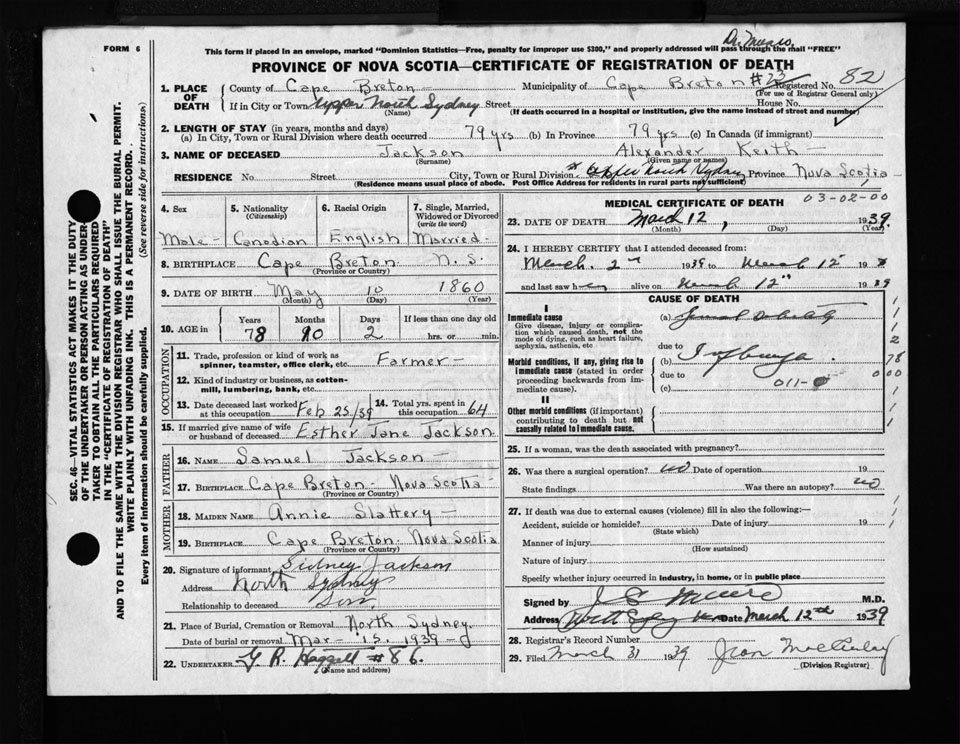 FORM 6
Dr. Munro
This form if placed in an envelope, marked "Dominion Statistics—Free, penalty for improper use $300," and properly addressed will pass through the mail "FREE"
PROVINCE OF NOVA SCOTIA—CERTIFICATE OF REGISTRATION OF DEATH
1. PLACE OF DEATH
County of Cape Breton Municipality of Cape Breton #23 Registered No. 82
(For use of Registrar General only)
If in City or Town Upper North Sydney Street House No.
(Name) (If death occurred in a hospital or institution, give the name instead of street and number)
2. LENGTH OF STAY (in years, months and days)
(a) In City, Town or Rural Division where death occurred 79 yrs (b) In Province 79 yrs (c) In Canada (if immigrant)
3. NAME OF DECEASED Jackson Alexander Keith
(Surname) (Given name or names)
RESIDENCE No. Street City, Town or Rural Division Upper North Sydney Province Nova Scotia
(Residence means usual place of abode. Post Office Address for residents in rural parts not sufficient)
4. Sex 5. Nationality (Citizenship) 6. Racial Origin 7. Single, Married, Widowed or Divorced (write the word)
Male Canadian English Married
8. BIRTHPLACE Cape Breton N.S.
(Province or Country)
9. DATE OF BIRTH May 10 1860
(Month) (Day) (Year)
10. AGE in Years Months Days If less than one day old
78 10 2 hrs. or min.
OCCUPATION
11. Trade, profession or kind of work as spinner, teamster, office clerk, etc Farmer
12. Kind of industry or business, as cotton-mill, lumbering, bank, etc
13. Date deceased last worked at this occupation Feb 25/39 14. Total yrs. spent in this occupation 64
15. If married give name of wife or husband of deceased Esther Jane Jackson
FATHER
16. NAME Samuel Jackson
17. BIRTHPLACE Cape Breton - Nova Scotia
(Province or Country)
MOTHER
18. MAIDEN NAME Annie Slattery
19. BIRTHPLACE Cape Breton. Nova Scotia
(Province or Country)
20. Signature of informant Sidney Jackson
Address North Sydney
Relationship to deceased Son
21. Place of Burial, Cremation or Removal North Sydney
Date of burial or removal Mar - 15. 1939
22. UNDERTAKER G. R. Haggett #86.
(Name and address)
MEDICAL CERTIFICATE OF DEATH
03-02-00
23. DATE OF DEATH March 12, 1939
(Month) (Day) (Year)
24. I HEREBY CERTIFY that I attended deceased from:
March 2nd 1939 to March 12 19
and last saw h alive on March 12 1939
CAUSE OF DEATH
I
Immediate cause
Give disease, injury or complication which caused death, not the mode of dying, such as heart failure, asphyxia, asthenia, etc
(a) General Debility
due to
Morbid conditions, if any, giving rise to immediate cause (stated in order proceeding backwards from immediate cause).
(b) Influenza
due to
(c) 011-0
II
Other morbid conditions (if important) contributing to death but not causally related to immediate cause.
25. If a woman, was the death associated with pregnancy?
26. Was there a surgical operation? no Date of operation 19
State findings Was there an autopsy? no
27. If death was due to external causes (violence) fill in also the following:—
Accident, suicide or homicide? Date of injury 19
(State which)
Manner of injury
(How sustained)
Nature of injury
Specify whether injury occurred in industry, in home, or in public place
Signed by M.D.
Address Date March 12th 1939
28. Registrar's Record Number
29. Filed March 31 1939 Jean
(Division Registrar)
SEC. 46—VITAL STATISTICS ACT MAKES IT THE DUTY
OF THE UNDERTAKER OR PERSON ACTING AS UNDERTAKER
TO OBTAIN ALL THE PARTICULARS REQUIRED
IN THE "CERTIFICATE OF REGISTRATION OF DEATH"
AND TO FILE THE SAME WITH THE DIVISION REGISTRAR WHO SHALL ISSUE THE BURIAL PERMIT.
WRITE PLAINLY WITH UNFADING INK. THIS IS A PERMANENT RECORD.
Every item of information should be carefully supplied. (See reverse side for instructions)